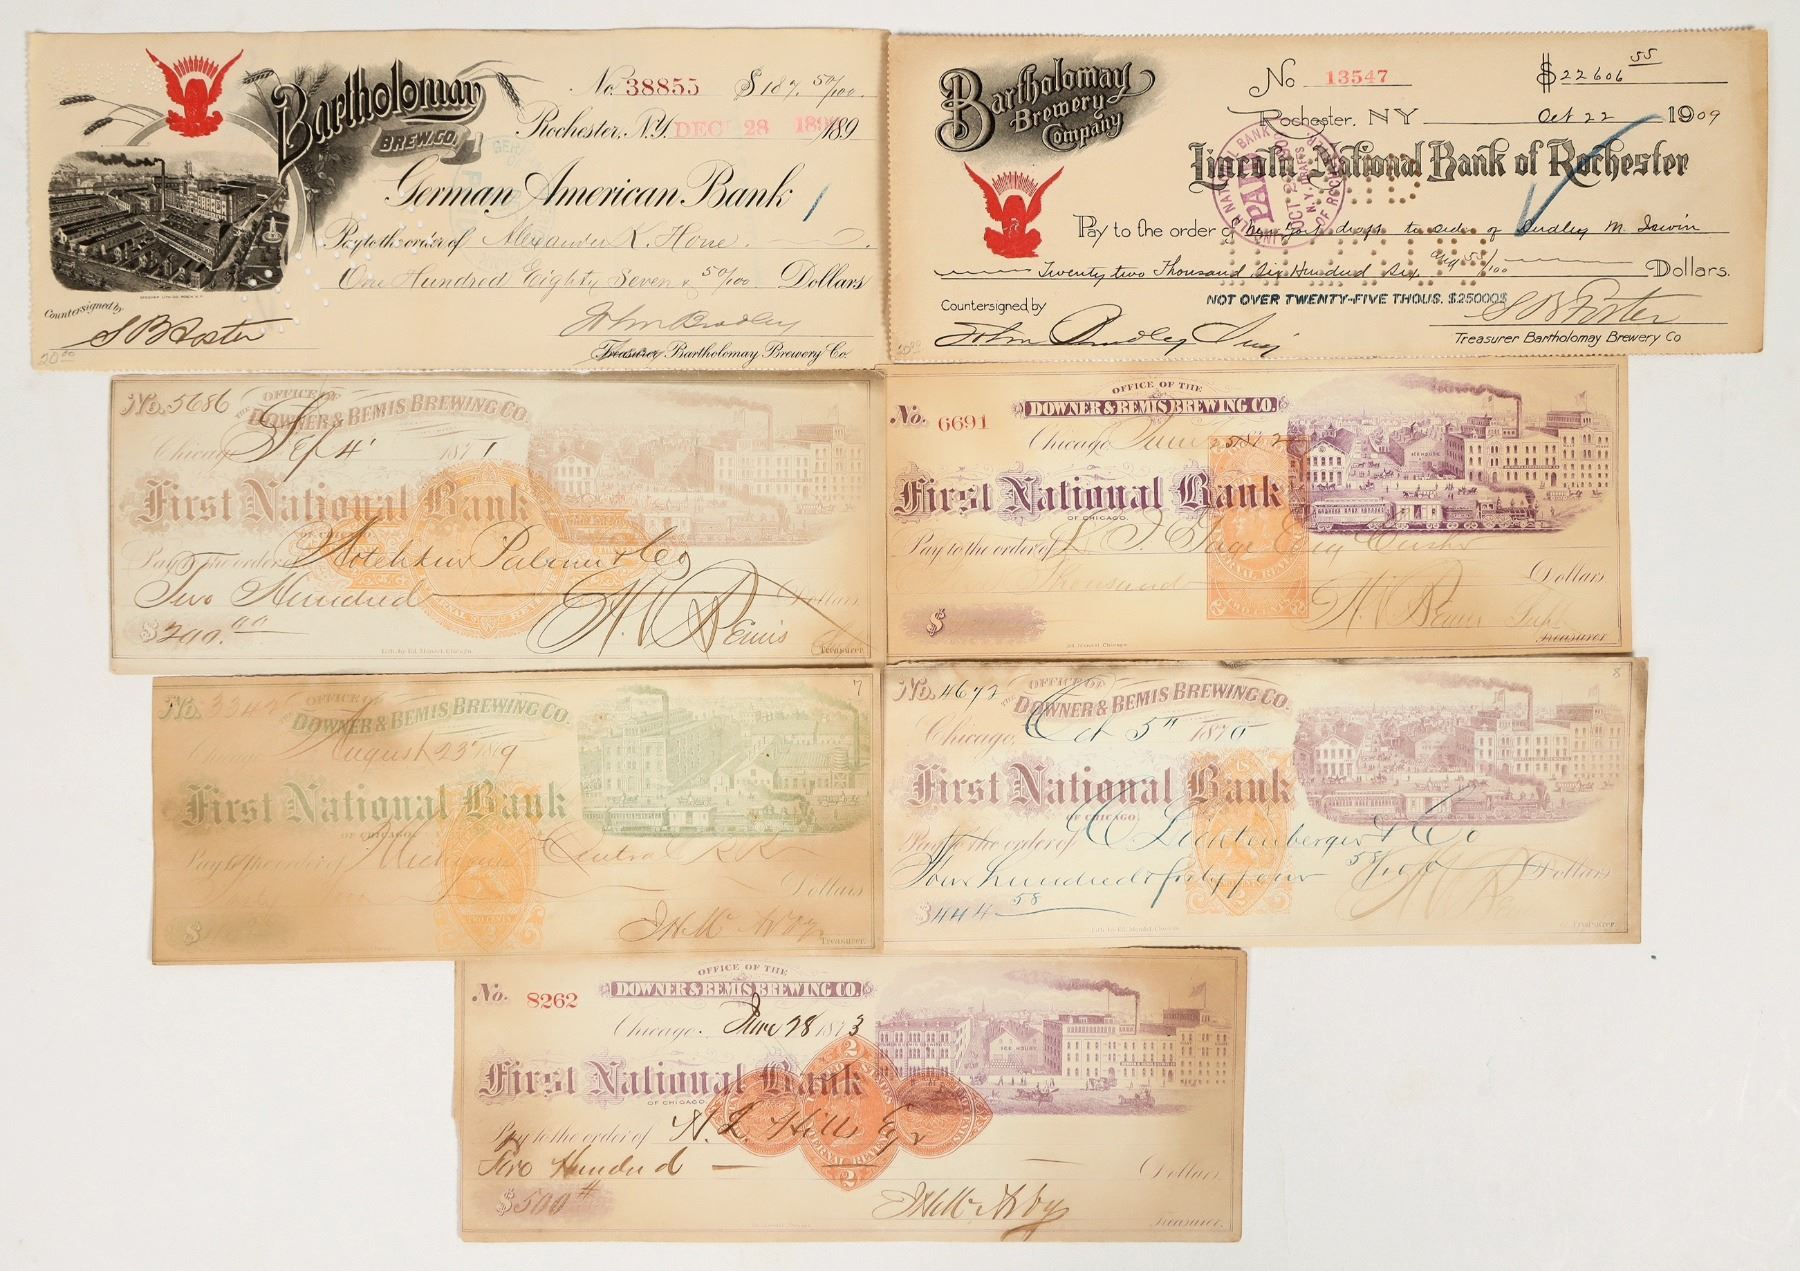 Bartholomay
BREW. CO.
No. 38855 $187.50/100
Rochester, N.Y. DEC 28 189
German American Bank
Pay to the order of Alexander K. Hone.
One Hundred Eighty Seven & 50/100 Dollars
Countersigned by
S B Foster
John Bradley
Treasurer Bartholomay Brewery Co.
20 00
Bartholomay
Brewery
Company
No 13547 $22606 55
Rochester, NY Oct 22 1909
Lincoln National Bank of Rochester
PAID
Pay to the order of New York draft to order of Dudley M. Irwin
Twenty two Thousand Six Hundred Six and 55/100 Dollars.
NOT OVER TWENTY-FIVE THOUS. $25000$
Countersigned by
John Bradley
S B Foster
Treasurer Bartholomay Brewery Co
No. 5686
OFFICE OF
THE DOWNER & BEMIS BREWING CO.
Chicago Sep 4 1871
First National Bank
OF CHICAGO
Pay to the order of Hotchkiss Palmer & Co
Two Hundred Dollars
$200.00
H. V. Bemis
Treasurer
Lith. by Ed. Mendel, Chicago.
No. 6691
OFFICE OF THE
DOWNER & BEMIS BREWING CO.
Chicago, June 187
First National Bank
OF CHICAGO.
ICE HOUSE
Pay to the order of
Thousand Dollars
TWO CENTS
$
H. V. Bemis
Treasurer
Ed. Mendel, Chicago
7
No. 3342
OFFICE OF
THE DOWNER & BEMIS BREWING CO.
Chicago August 23 1869
First National Bank
OF CHICAGO.
Pay to the order of Michigan Central RR
Dollars
TWO CENTS
$
J H McAvoy
Treasurer.
8
No. 4672
OFFICE OF
THE DOWNER & BEMIS BREWING CO.
Chicago, Oct 5th 1870
First National Bank
OF CHICAGO.
Pay to the order of C Lichtenberger & Co
Four hundred & forty four 58/100 Dollars
$444 58
Treasurer
Lith. by Ed. Mendel, Chicago
No. 8262
OFFICE OF THE
DOWNER & BEMIS BREWING CO.
Chicago. June 28 1873
First National Bank
OF CHICAGO
ICE HOUSE
Pay to the order of Hills Esq
Five Hundred Dollars
$500
J H McAvoy
Treasurer.